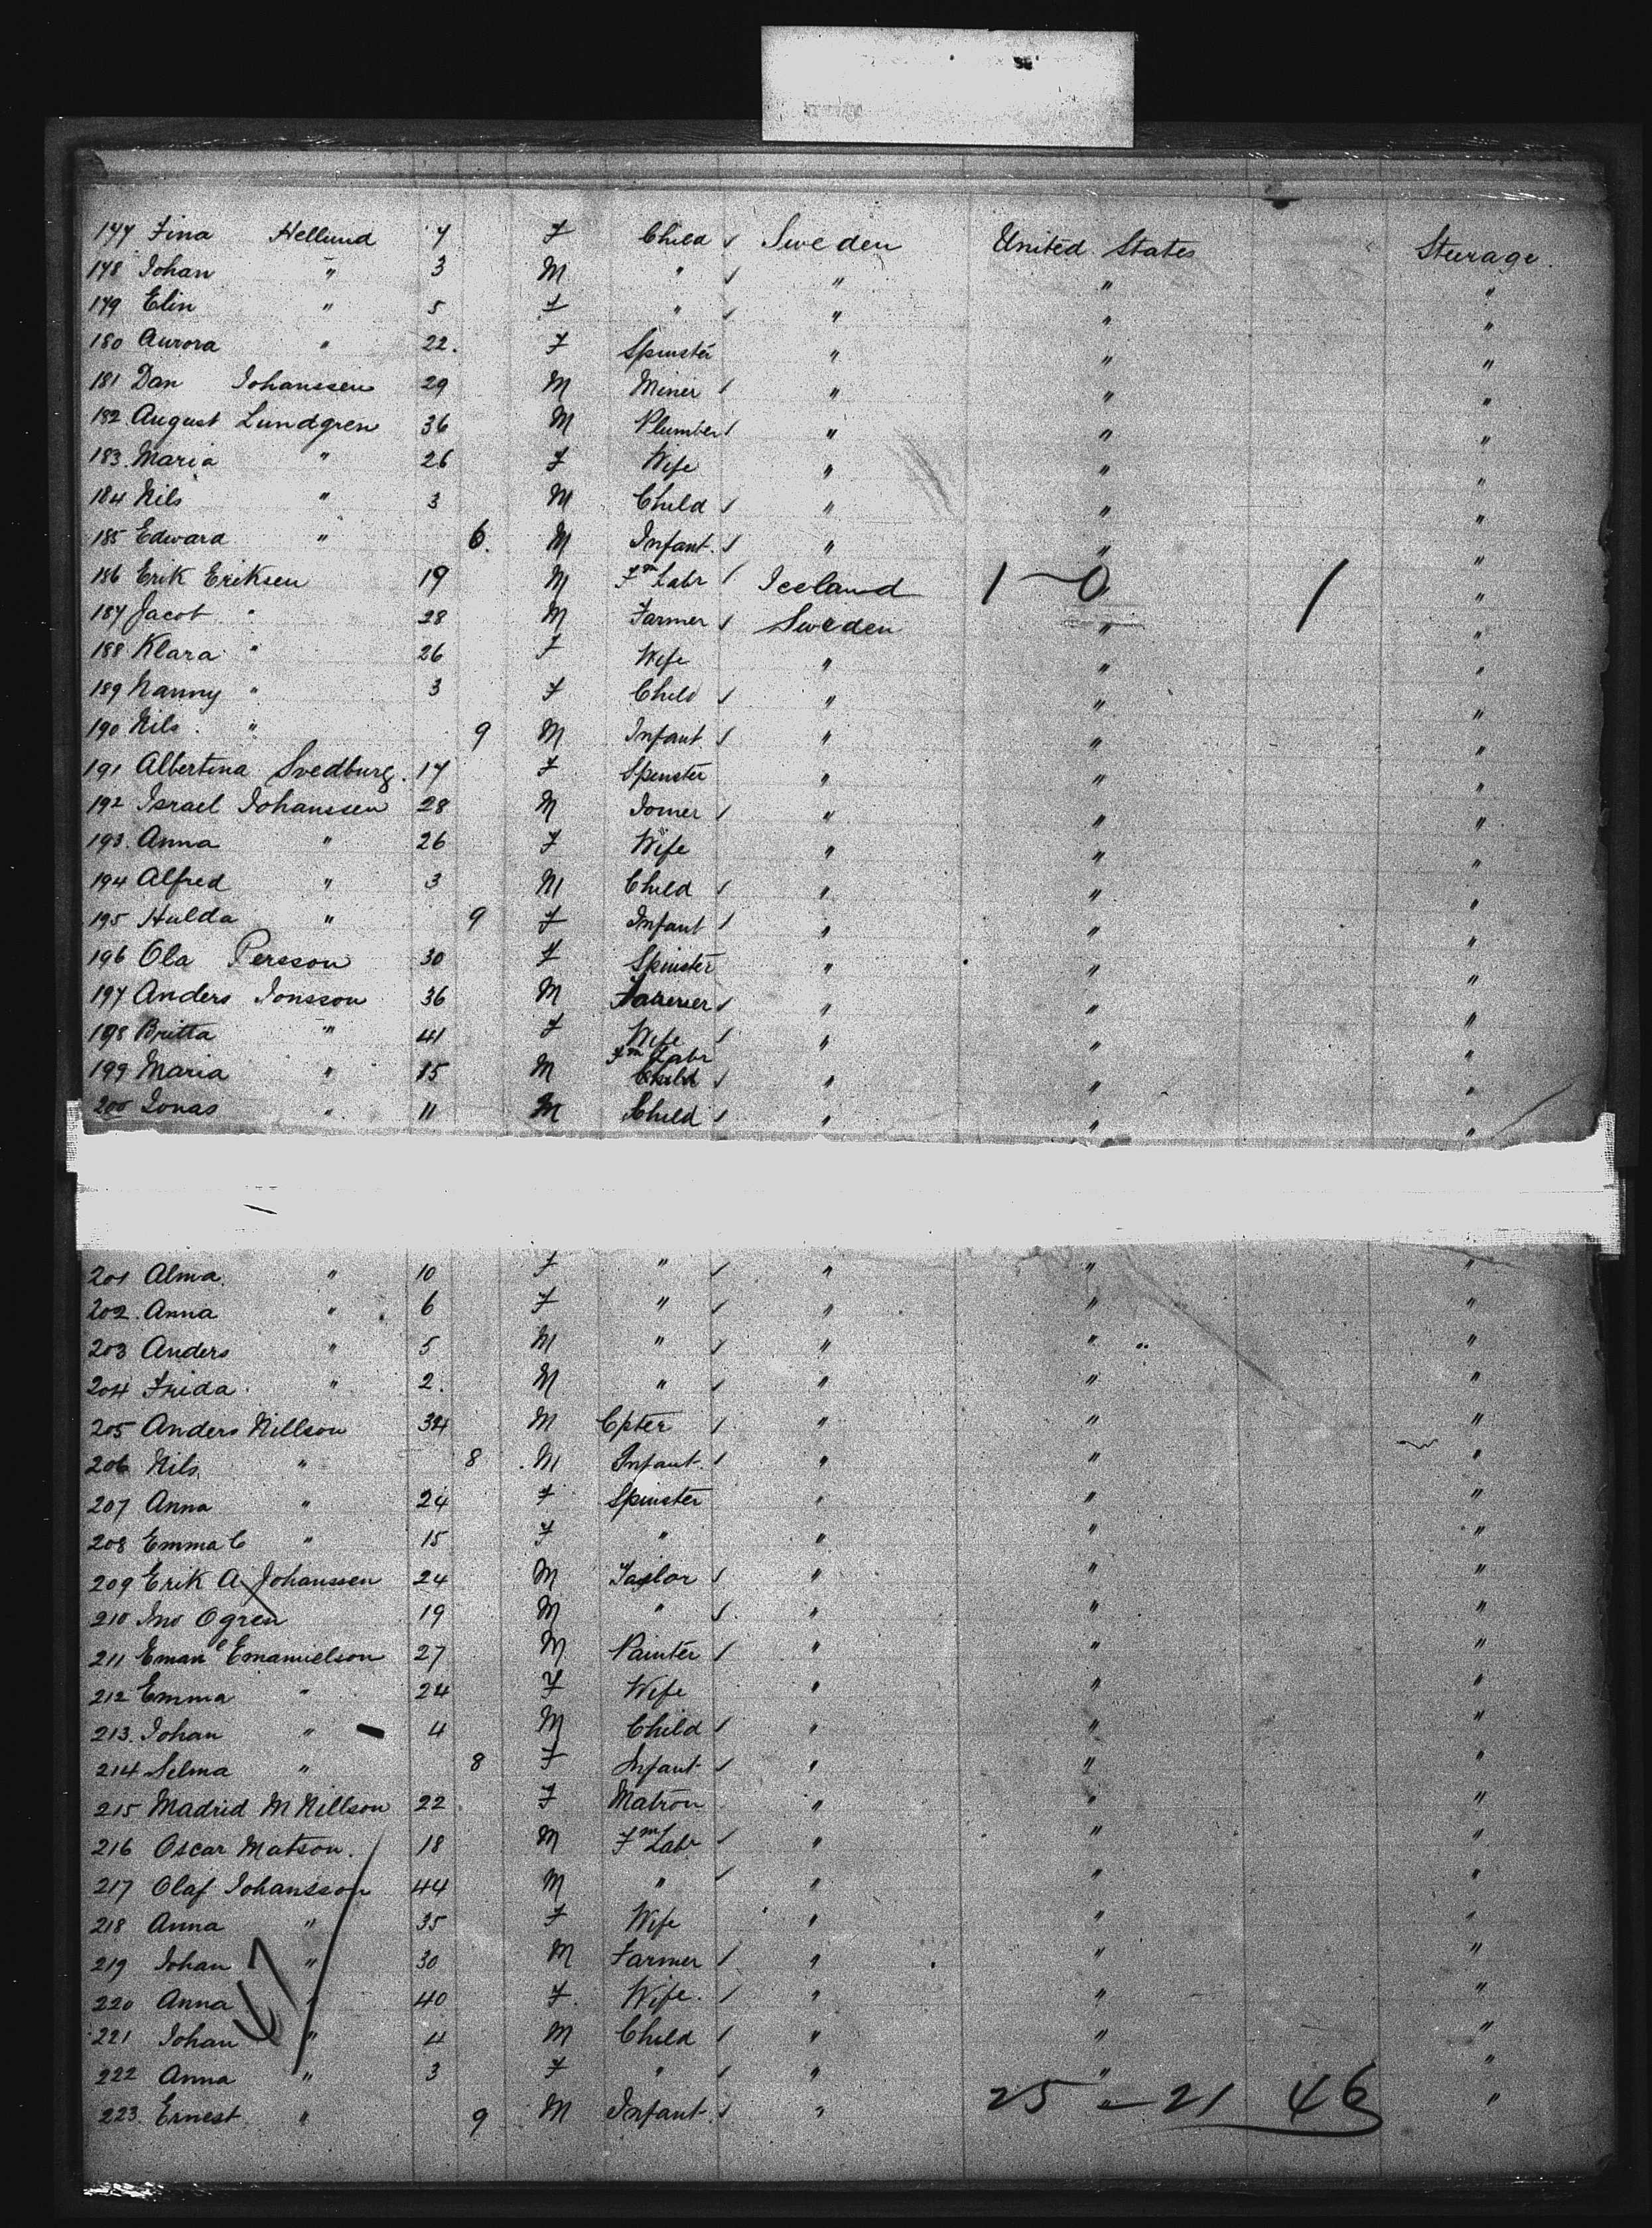 177 Fina Hellund 7 F Child ✓ Sweden United States Steerage.
178 Johan " 3 M " ✓ " " "
179 Elin " 5 F " ✓ " " "
180 Aurora " 22. F Spinster " " "
181 Dan Johanssen 29 M Miner ✓ " " "
182 August Lundgren 36 M Plumber ✓ " " "
183. Maria " 26 F Wife " " "
184 Nils " 3 M Child ✓ " " "
185 Edward " 6. M Infant. ✓ " " "
186 Erik Eriksen 19 M Fm Labr ✓ Iceland 1-0 1 "
187 Jacob " 28 M Farmer ✓ Sweden " "
188 Klara " 26 F Wife " " "
189 Nanny " 3 F Child ✓ " " "
190 Nils. " 9 M Infant. ✓ " " "
191 Albertina Svedburg. 17 F Spinster " " "
192 Israel Johanssen 28 M Joiner ✓ " " "
193. Anna " 26 F Wife " " "
194 Alfred " 3 M Child ✓ " " "
195 Hulda " 9 F Infant ✓ " " "
196 Ola Persson 30 F Spinster " " "
197 Anders Jonsson 36 M Farmer ✓ " " "
198 Britta " 41 F Wife ✓ " " "
199 Maria " 15 M Fm Labr Child ✓ " " "
200 Jonas " 11 M Child ✓ " " "
201 Alma. " 10 F " ✓ " " "
202. Anna " 6 F " ✓ " " "
203 Anders " 5 M " ✓ " " "
204 Frida " 2. M " ✓ " " "
205 Anders Nillson 34 M Cpter ✓ " " "
206 Nils " 8 M Infant. ✓ " " "
207 Anna " 24 F Spinster " " "
208 Emma C " 15 F " " " "
209 Erik A Johanssen 24 M Tailor ✓ " " "
210 Jno Ogren 19 M " ✓ " " "
211 Emanl Emanuelson 27 M Painter ✓ " " "
212 Emma " 24 F Wife " " "
213. Johan " 4 M Child ✓ " " "
214 Selma " 8 F Infant ✓ " " "
215 Madrid M Nillson 22 F Matron " " "
216 Oscar Matson. 18 M Fm Labr ✓ " " "
217 Olaf Johansson 44 M " ✓ " " "
218 Anna " 35 F Wife " " "
219 Johan " 30 M Farmer ✓ " " "
220 Anna " 40 F. Wife. ✓ " " "
221 Johan " 4 M Child ✓ " " "
222 Anna " 3 F " ✓ " " "
223. Ernest " 9 M Infant. ✓ " 25-21 46 "